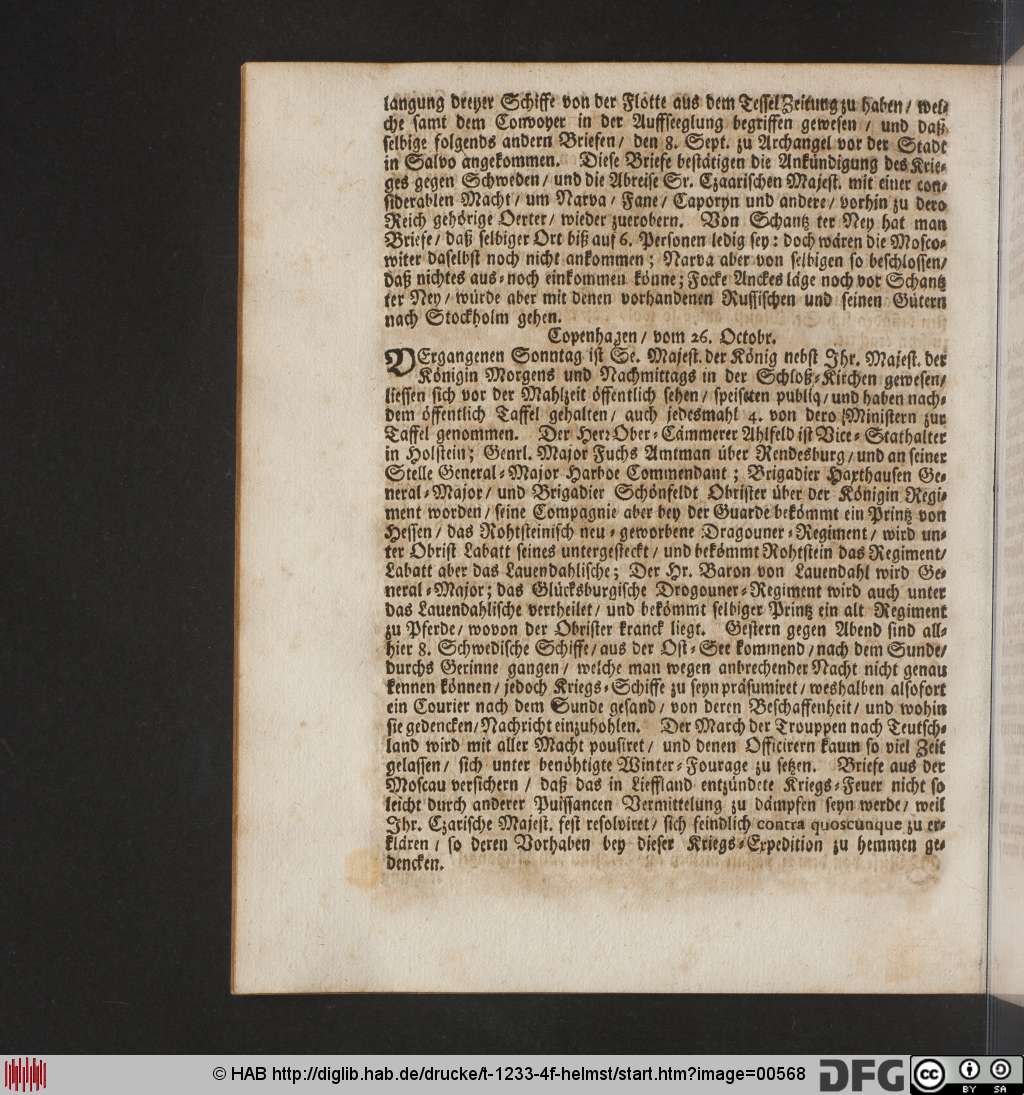 langung dreyer Schiffe von der Flotte aus dem Tessel Zeitung zu haben / wel⸗
che samt dem Convoyer in der Auffseeglung begriffen gewesen / und daß
selbige folgends andern Briefen / den 8. Sept. zu Archangel vor der Stadt
in Salvo angekommen. Diese Briefe bestätigen die Ankündigung des Krie⸗
ges gegen Schweden / und die Abreise Sr. Czaarischen Majest. mit einer con⸗
siderablen Macht / um Narva / Fane / Caporyn und andere / vorhin zu dero
Reich gehörige Oerter / wieder zuerobern. Von Schantz ter Ney hat man
Briefe / daß selbiger Ort biß auf 6. Personen ledig sey: doch wären die Mosco⸗
witer daselbst noch nicht ankommen; Narva aber von selbigen so beschlossen /
daß nichtes aus⸗noch einkommen könne; Focke Anckes läge noch vor Schantz
ter Ney / würde aber mit denen vorhandenen Russischen und seinen Gütern
nach Stockholm gehen.
Copenhagen / vom 26. Octobr.
VErgangenen Sonntag ist Se. Majest. der König nebst Ihr. Majest. der
Königin Morgens und Nachmittags in der Schloß⸗Kirchen gewesen /
liessen sich vor der Mahlzeit öffentlich sehen / speiseten publiq / und haben nach⸗
dem öffentlich Taffel gehalten / auch jedesmahl 4. von dero Ministern zur
Taffel genommen. Der Herr Ober⸗Cämmerer Ahlfeld ist Vice⸗Stathalter
in Holstein; Genrl. Major Fuchs Amtman über Rendesburg / und an seiner
Stelle General⸗Major Harboe Commendant; Brigadier Harthausen Ge⸗
neral⸗Major / und Brigadier Schönfeldt Obrister über der Königin Regi⸗
ment worden / seine Compagnie aber bey der Guarde bekömmt ein Printz von
Hessen / das Rohtsteinisch neu⸗geworbene Dragouner⸗Regiment / wird un⸗
ter Obrist Labatt seines untergesteckt / und bekömmt Rohtstein das Regiment /
Labatt aber das Lauendahlische; Der Hr. Baron von Lauendahl wird Ge⸗
neral⸗Major; das Glücksburgische Drogouner⸗Regiment wird auch unter
das Lauendahlische vertheilet / und bekömmt selbiger Printz ein alt Regiment
zu Pferde / wovon der Obrister kranck liegt. Gestern gegen Abend sind all⸗
hier 8. Schwedische Schiffe / aus der Ost⸗See kommend / nach dem Sunde /
durchs Gerinne gangen / welche man wegen anbrechender Nacht nicht genau
kennen können / jedoch Kriegs⸗Schiffe zu seyn präsumiret / weshalben alsofort
ein Courier nach dem Sunde gesand / von deren Beschaffenheit / und wohin
sie gedencken / Nachricht einzuhohlen. Der March der Trouppen nach Teutsch⸗
land wird mit aller Macht pousiret / und denen Officirern kaum so viel Zeit
gelassen / sich unter benöhtigte Winter⸗Fourage zu setzen. Briefe aus der
Moscau versichern / daß das in Lieffland entzündete Kriegs⸗Feuer nicht so
leicht durch anderer Puissancen Vermittelung zu dämpfen seyn werde / weil
Ihr. Czarische Majest. fest resolviret / sich feindlich contra quoscunque zu er⸗
klären / so deren Vorhaben bey dieser Kriegs⸗Expedition zu hemmen ge⸗
dencken.
© HAB http://diglib.hab.de/drucke/t-1233-4f-helmst/start.htm?image=00568
DFG
cc BY SA